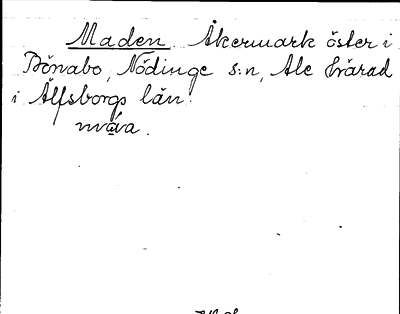 Maden Åkermark öster i
Bönabo, Nödinge s:n, Ale härad
i Älfsborgs län.